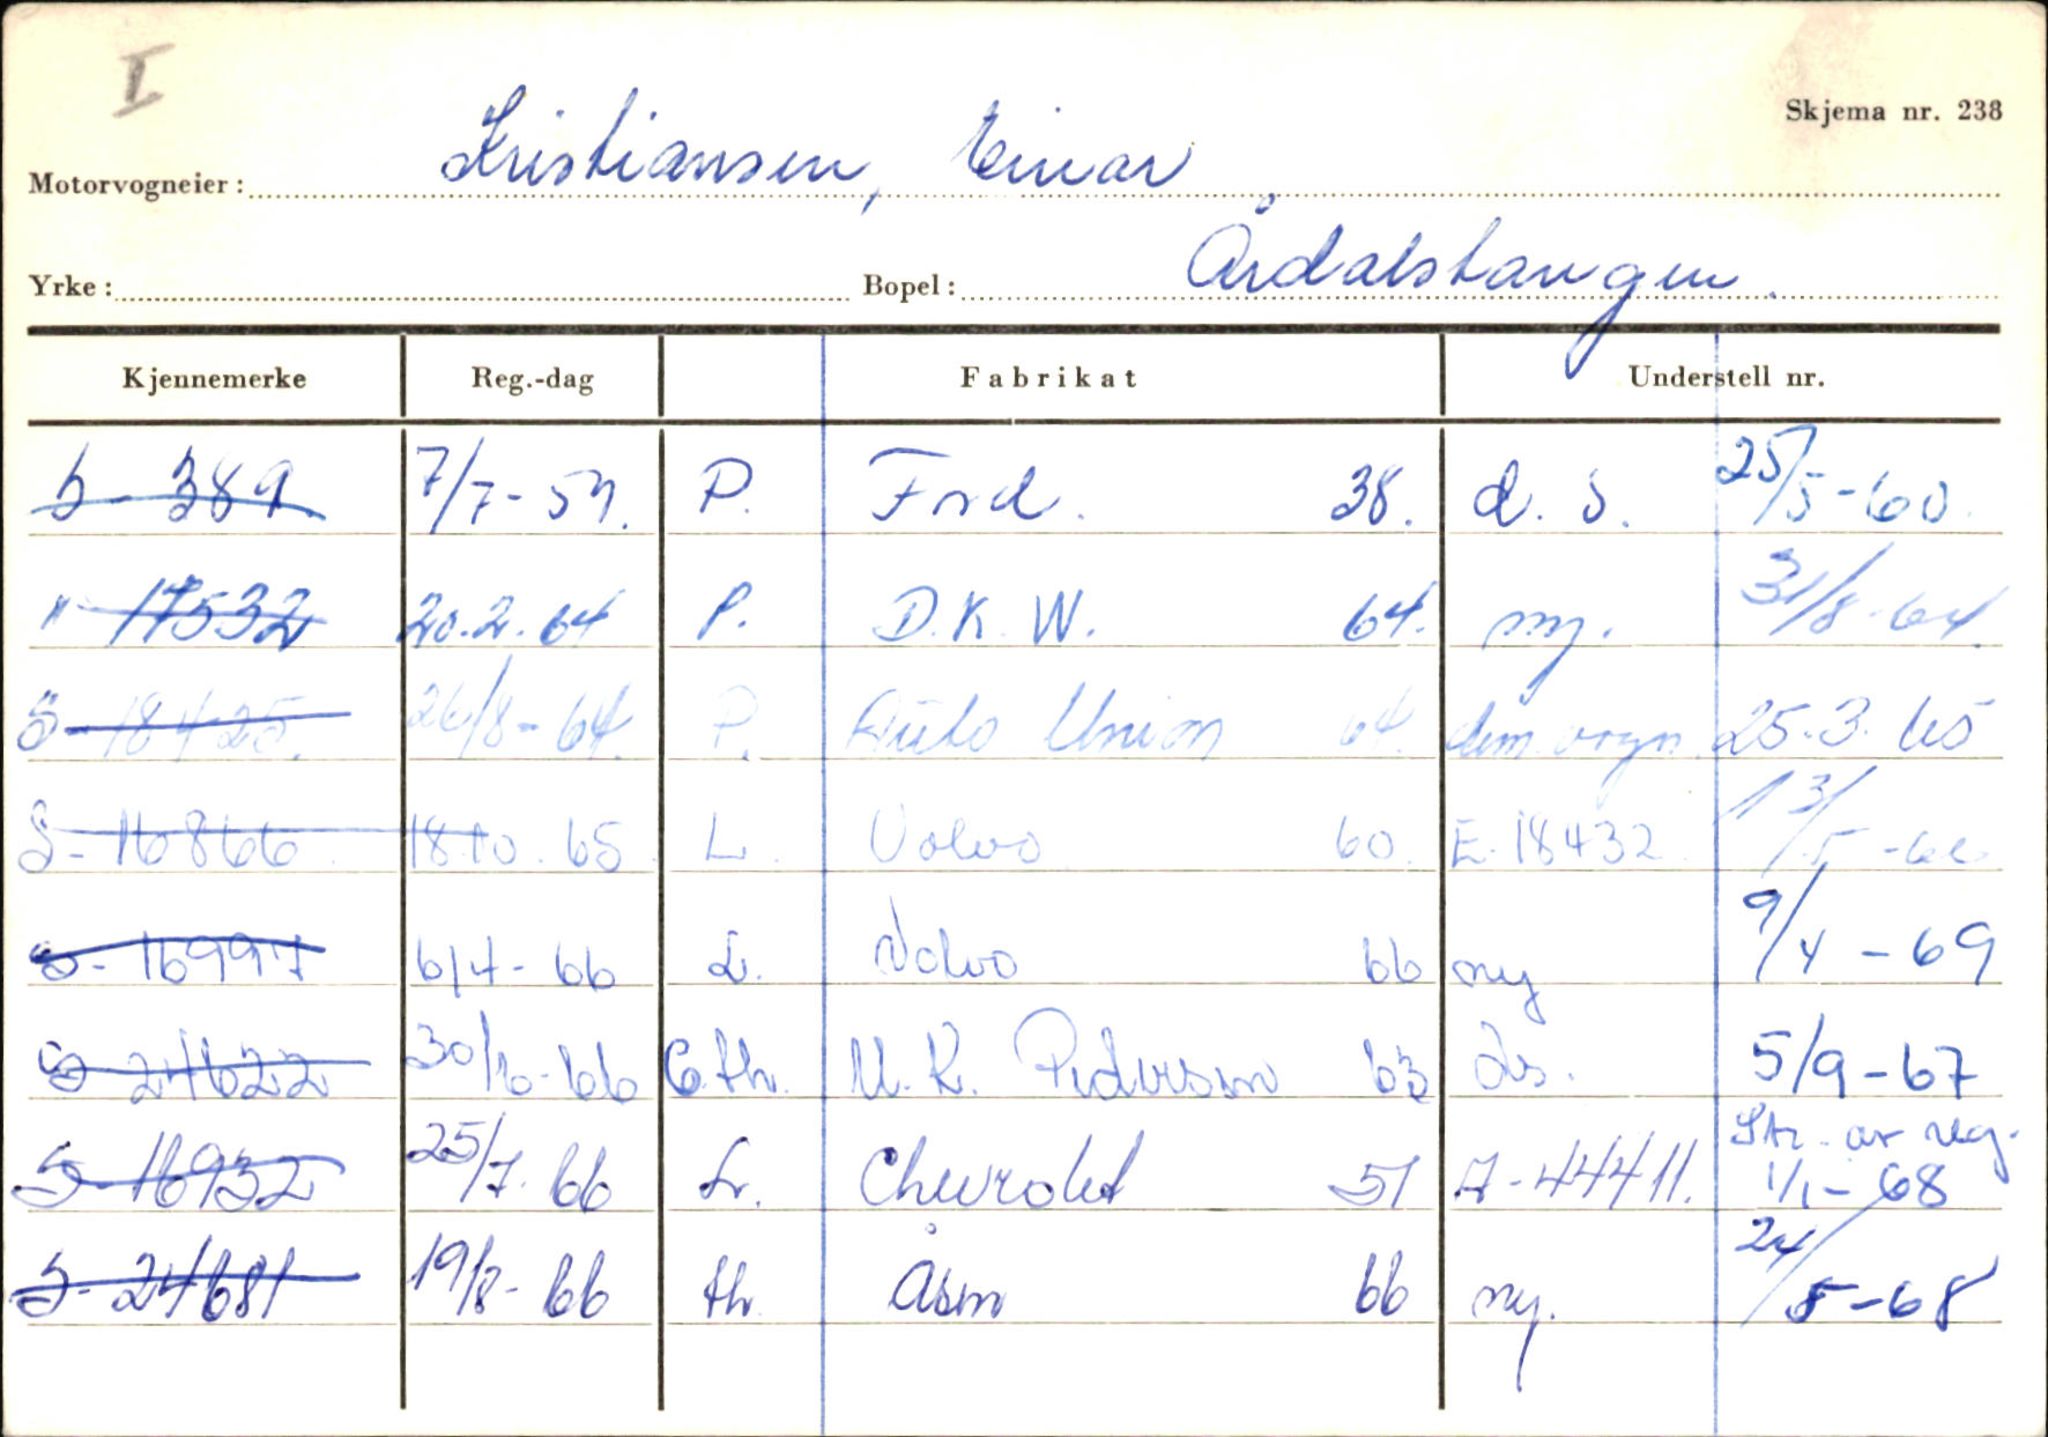 I
Skjema nr. 238
Motorvogneier: Kristiansen, Einar
Yrke: Bopel: Årdalstangen.
Kjennemerke Reg.-dag Fabrikat Understell nr.
S-389 7/7-59. P. Ford. 38. d. s. 25/5-60.
" 17532 20.2.64 P. D.K.W. 64. ny. 31/8-64.
S-18425. 26/8-64. P. Auto Union 64. 25.3.65
S-16866. 18.10.65. L. Volvo 60. E.18432 13/5-66
S-16997 6/4-66 L. Volvo 66 ny 9/4-69
S-24622 30/6-66 C.th. M.K. Pedersen 63 ds. 5/9-67
S-16932 25/7-66 L. Chevrolet 51 A-44411. Str. av reg. 1/1-68
S-24681 19/8-66 th. Åsen 66 ny. 24/5-68